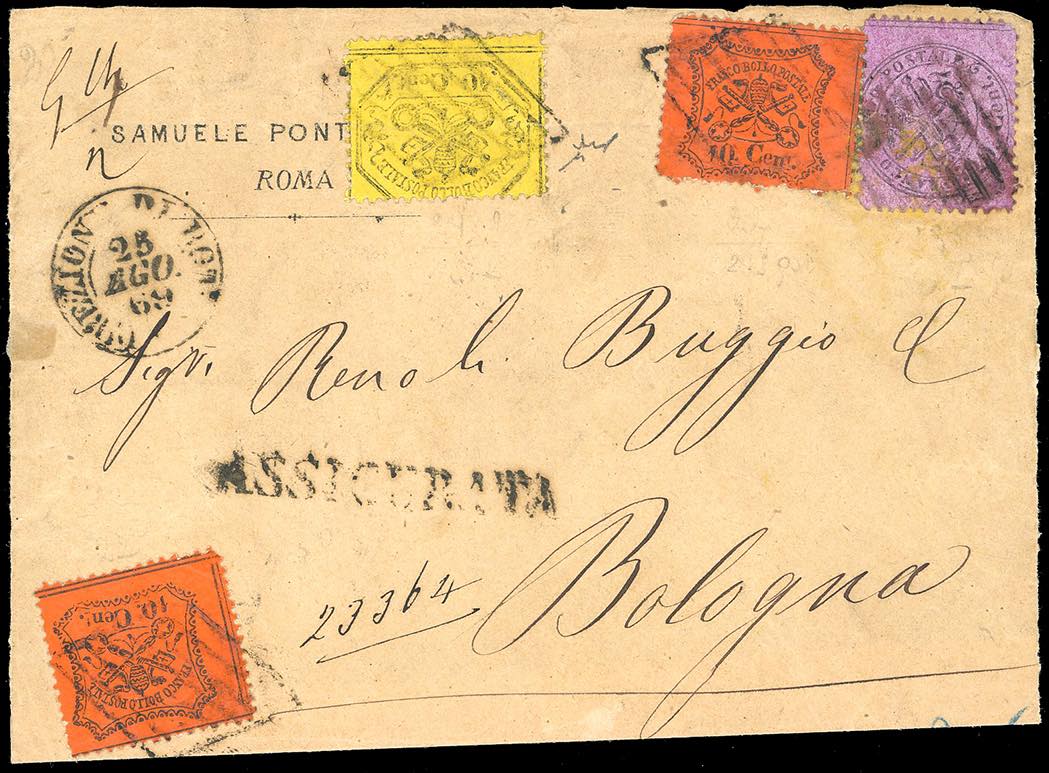 SAMUELE PONT
ROMA
40. Cent.
FRANCO BOLLO POSTALE
10. Cent.
FRANCO BOLLO POSTALE
POSTALE
20
DIREZIONE DI ROMA
25
AGO.
69
Sigri. Renoli Buggio C
ASSICURATA
23364
Bologna
10. Cent.
FRANCO BOLLO POSTALE